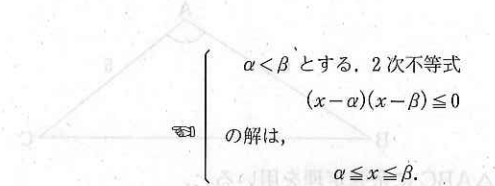 α<βとする．2次不等式
(x−α)(x−β)≦0
の解は，
α≦x≦β．